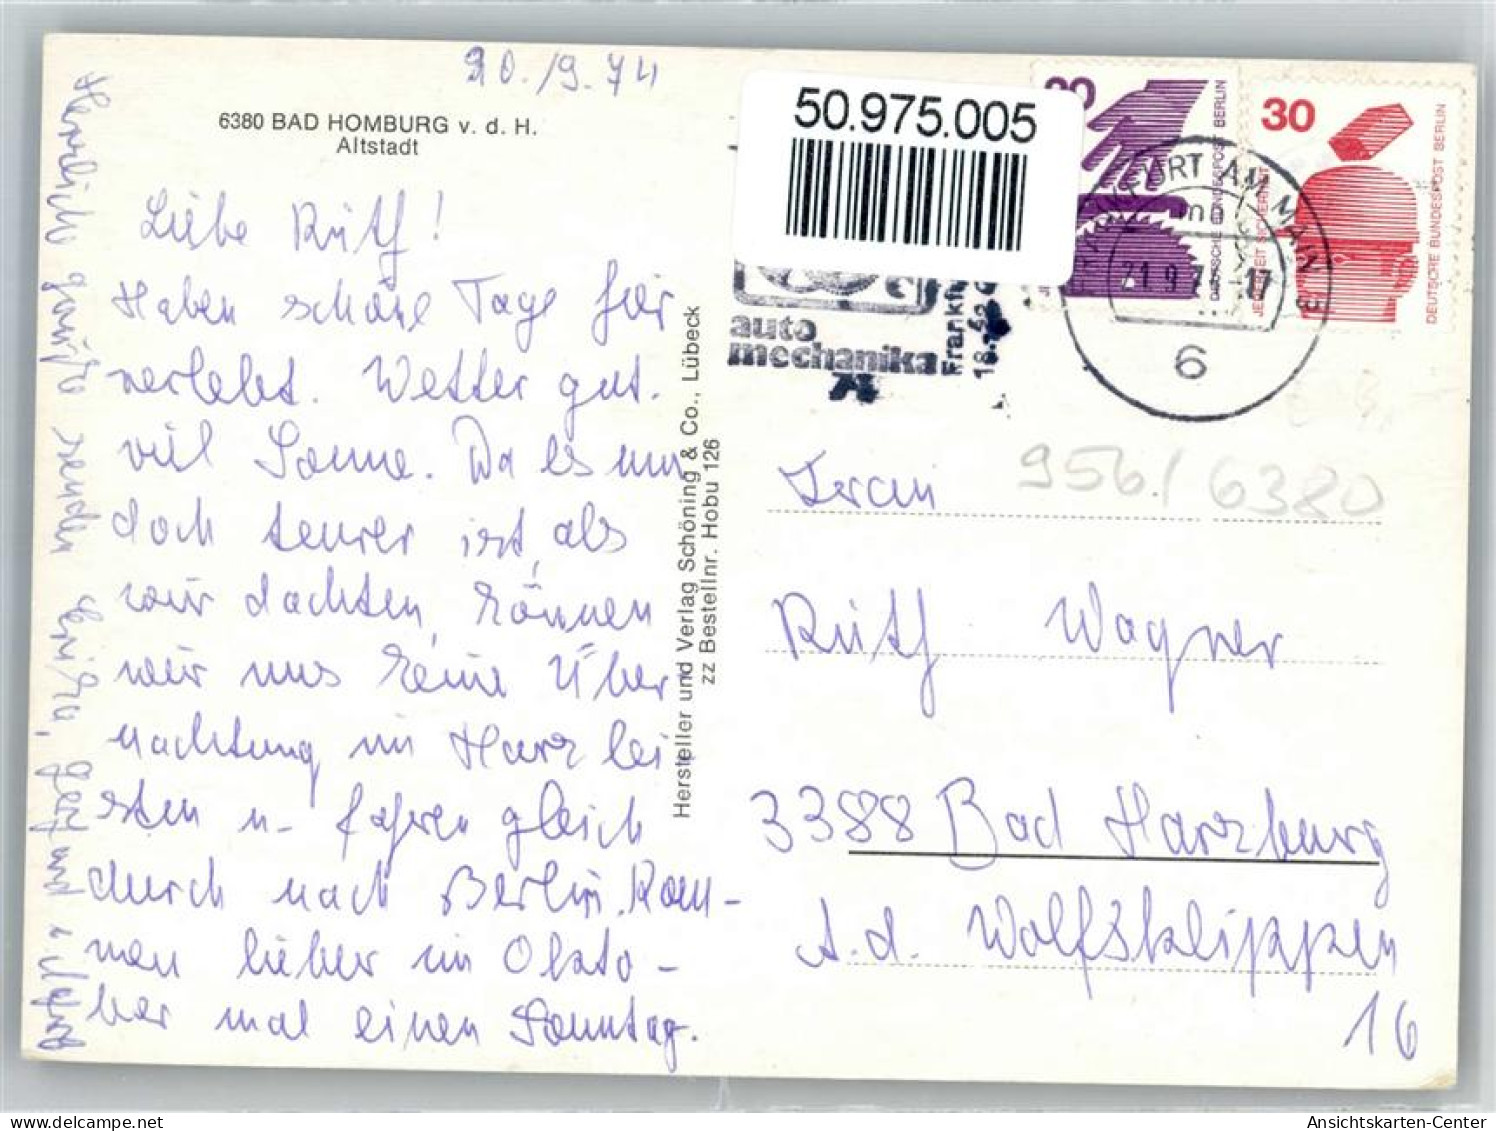 20./9.74
6380 BAD HOMBURG v. d. H.
Altstadt
Liebe Ruth!
Haben schöne Tage hier
verlebt. Wetter gut.
viel Sonne. Da es nun
doch teurer ist, als
wir dachten, können
wir uns keine Über
nachtung im Harz lei
sten u. fahren gleich
durch nach Berlin. Kom-
men lieber im Okto-
ber mal einen Sonntag.
Herzliche Grüße senden
Hersteller und Verlag Schöning & Co., Lübeck
zz Bestellnr. Hobu 126
50.975.005
auto
mechanika
Frankfu
20
DEUTSCHE BUNDESPOST BERLIN
30
JEDERZEIT SICHERHEIT
DEUTSCHE BUNDESPOST BERLIN
FRANKFURT AM MAIN
mn
21.9.74-17
6
956/6380
Frau
Ruth Wagner
3388 Bad Harzburg
A.d. Wolfsklippen
16
Ansichtskarten-Center